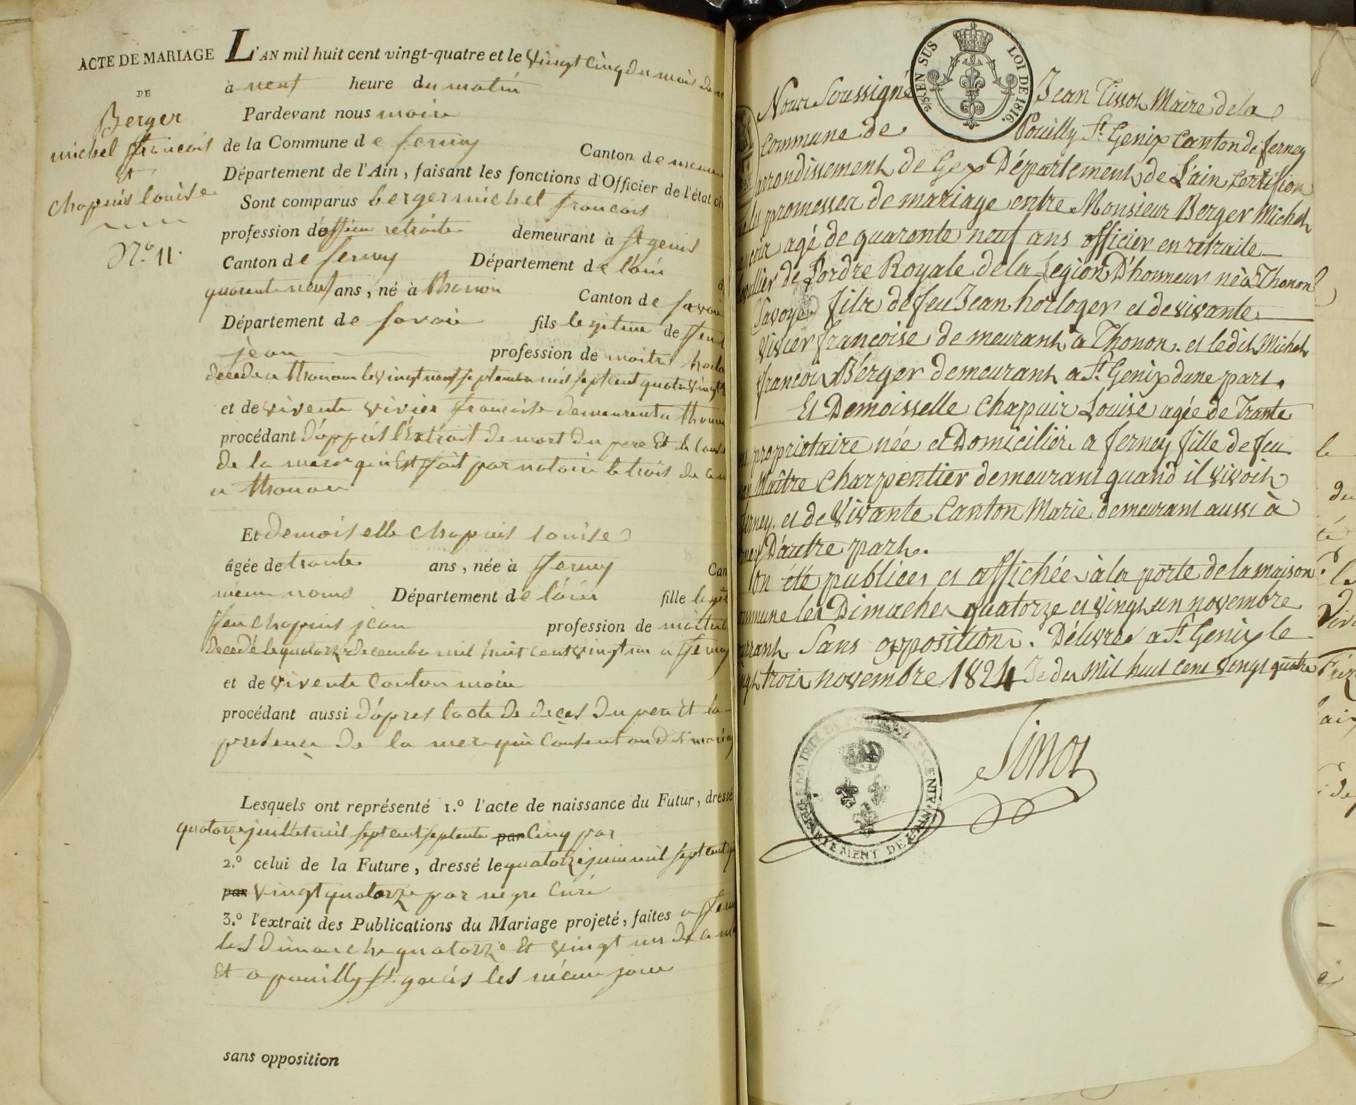 ACTE DE MARIAGE
DE
Berger
michel francois
et
chapuis louise
N.o 11.
L'AN mil huit cent vingt-quatre et le vingt cinq du mois de
à neuf heure du matin
Pardevant nous maire
de la Commune de ferney Canton de meme
Département de l'Ain, faisant les fonctions d'Officier de l'état
Sont comparus berger michel francois
profession d'officier retraite demeurant à st genis
Canton de ferney Département de l'ain
quarente neuf ans, né à thonon Canton de savoie
Département de savoie fils legitime de feu
jean profession de maitre
decede a thonon le vingt neuf septembre mil sept cent quatre vingt
et de vivente vivier francoise demeurent a thonon
procédant d'apprés l'extrait de mort du pere Et le
de la mere qui Est fait par notaire le trois du
a thonon
Et demoiselle chapuis louise
âgée de trente ans, née à ferney Can
meme Département de l'ain fille
feu chapuis jean profession de maitre
Decedé le quatorze decembre mil huit cent vingt un a ferney
et de vivente Canton marie
procédant aussi d'apres l'acte de deces du pere et la
presence de la mere qui Consent au dit
Lesquels ont représenté 1.º l'acte de naissance du Futur, dressé
quatorze juillet mil sept cent septente par Cinq par
2.º celui de la Future, dressé le quatorze juin mil sept cent
par vingt quatorze par negre Curé
3.º l'extrait des Publications du Mariage projeté, faites a
les dimanche quatorze Et vingt un de
Et a pouilly st genis les meme jour
sans opposition
EN SUS LOI DE 1816.
Nous Soussigné Jean Tissot Maire de la
Commune de Pouilly St. Genix Canton de ferney
arrondissement de Gex Département de Lain certifion
promesses de mariage entre Monsieur Berger Michel
agé de quarante neuf ans officier en retraite
de Lordre Royale de la Legion D'honneur né à Thonon
Savoye fils de feu Jean horloger et de vivante
Vivier françoise demeurant a Thonon. et ledit Michel
françois Berger demeurant a St. Genix dune part.
Et Demoisselle Chapuis Louise agée de Trente
propriétaire née et Domiciliée a ferney fille de feu
Maître Charpentier demeurant quand il vivoit
ferney. et de Vivante Canton Marie demeurant aussi à
D'autre part.
été publiées et affichée à la porte de la maison
commune les Dimaches quatorze et vingt un novembre
courant Sans opposition. Délivrée a St. Genix le
vingt trois novembre 1824 Je dis mil huit cent vingt quatre
Tissot
MAIRIE DE POUILLY ST GENIX
DÉPARTEMENT DE L'AIN